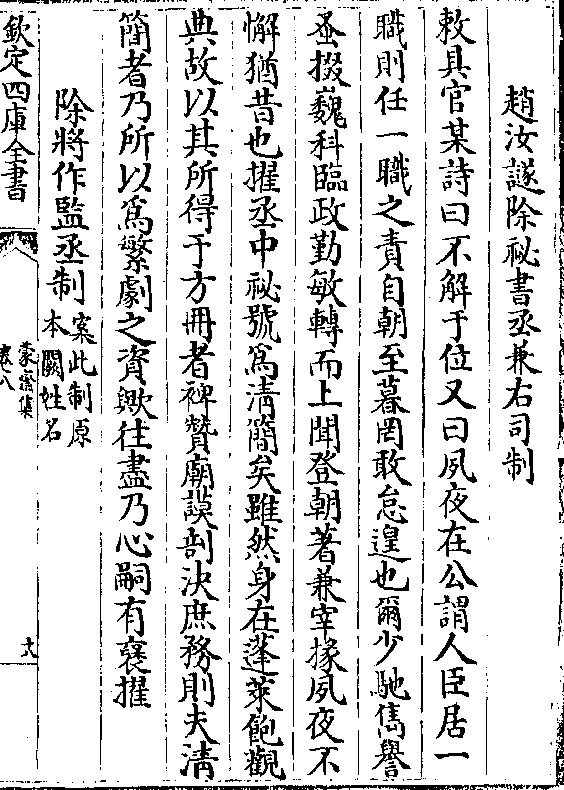 趙汝讜除祕書丞兼右司制
敕具官某詩曰不解于位又曰夙夜在公謂人臣居一
職則任一職之責自朝至暮罔敢怠遑也爾少馳雋譽
蚤掇巍科臨政勤敏轉而上聞登朝著兼宰掾夙夜不
懈猶昔也擢丞中祕號為清簡矣雖然身在蓬萊飽觀
典故以其所得于方冊者裨贊廟謨剖決庶務則夫清
簡者乃所以為繁劇之資歟往盡乃心嗣有襃擢
除將作監丞制案此制原
本闕姓名
欽定四庫全書
蒙齋集
卷八